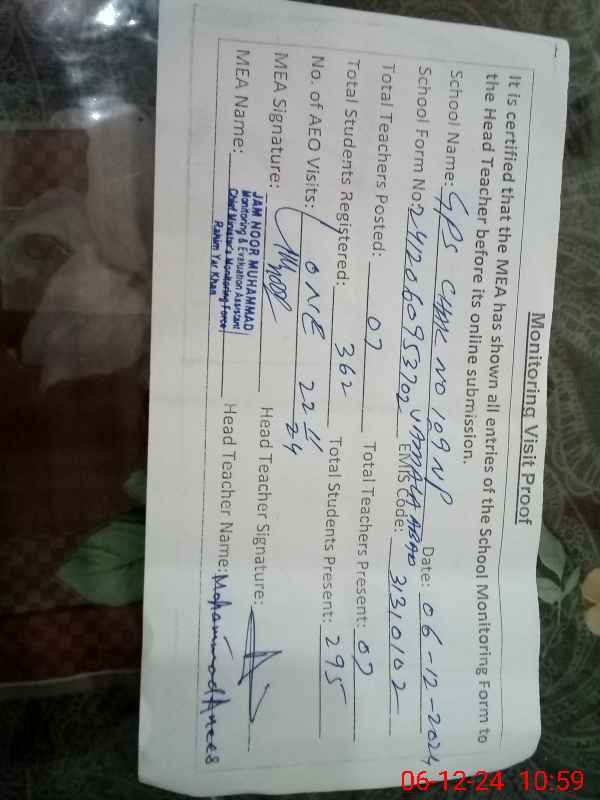 Monitoring Visit Proof
It is certified that the MEA has shown all entries of the School Monitoring Form to
the Head Teacher before its online submission.
School Name: GPS CHAK NO 109 NP Date: 06-12-2024
School Form No: 2412060953702 EMIS Code: 31310102
Total Teachers Posted: 07 Total Teachers Present: 07
Total Students Registered: 362 Total Students Present: 295
No. of AEO Visits: ONE 22 11 24
MEA Signature: Head Teacher Signature:
JAM NOOR MUHAMMAD
Monitoring & Evaluation Assistant
Chief Minister's Monitoring Force
Rahim Yar Khan
MEA Name: Head Teacher Name: Mohammad Anees
06-12-24 10:59